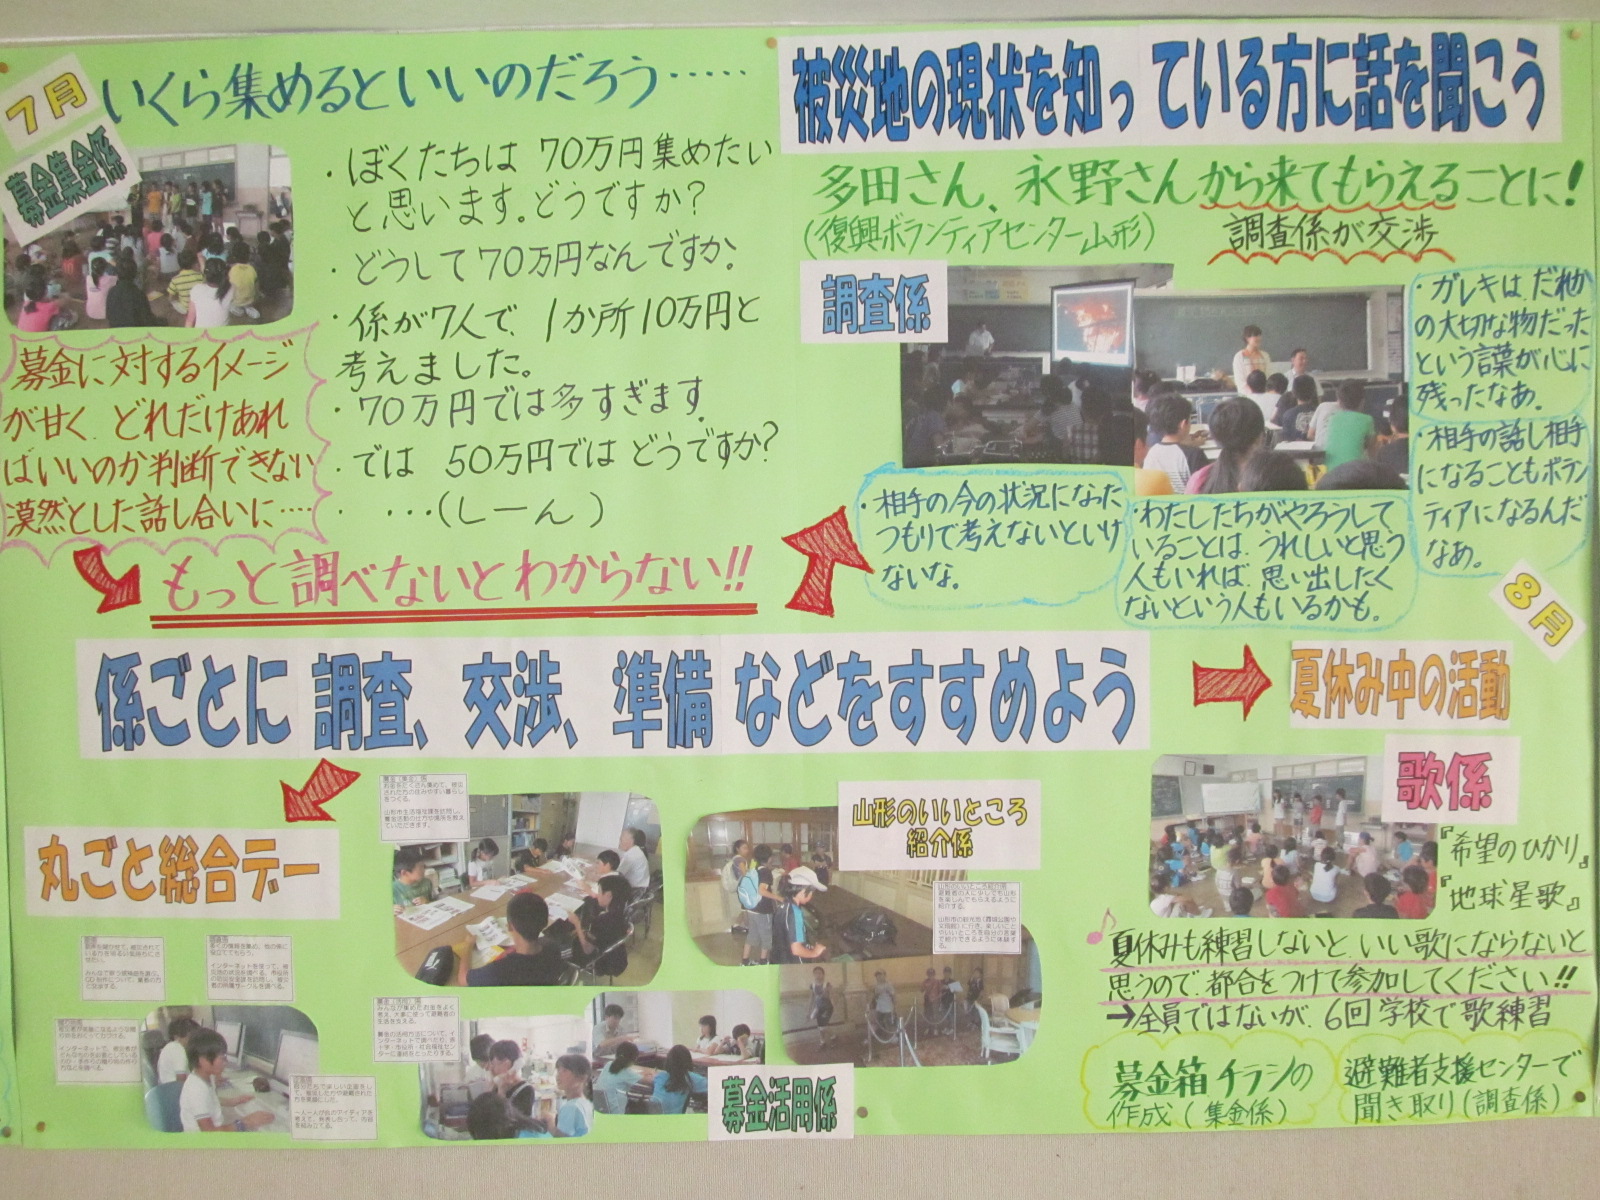 7月
いくら集めるといいのだろう……
募金集金係
・ぼくたちは 70万円集めたい
と思います。どうですか?
・どうして70万円なんですか。
・係が7人で、1か所10万円と
考えました。
・70万円では多すぎます。
・では 50万円では どうですか?
・ …(しーん)
募金に対するイメージ
が甘く、どれだけあれ
ばいいのか判断できない
漠然とした話し合いに…
もっと調べないとわからない!!
被災地の現状を知っ ている方に話を聞こう
多田さん、永野さんから来てもらえることに!
(復興ボランティアセンター山形)
調査係が交渉
調査係
・ガレキは、だれか
の大切な物だった
という言葉が心に
残ったなあ。
・相手の話し相手
になることもボラン
ティアになるんだ
なあ。
・相手の今の状況になった
つもりで考えないといけ
ないな。
・わたしたちがやろうとして
いることは、うれしいと思う
人もいれば、思い出したく
ないという人もいるかも。
8月
係ごとに 調査、交渉、準備 などをすすめよう
夏休み中の活動
歌係
『希望のひかり』
『地球星歌』
夏休みも練習しないと、いい歌にならないと
思うので、都合をつけて参加してください!!
→全員ではないが、6回 学校で歌練習
募金箱 チラシの
作成(集金係)
避難者支援センターで
聞き取り(調査係)
丸ごと総合デー
山形のいいところ
紹介係
募金活用係